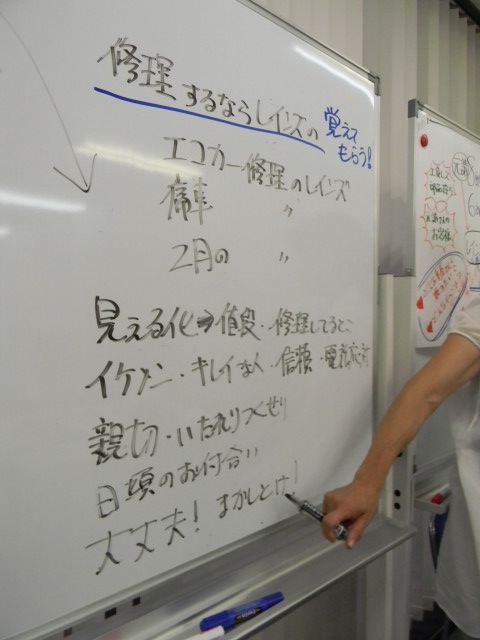 修理するならレインズの
覚えて
もらう!
エコカー修理のレインズ
痛車 〃
2月の 〃
見える化⇒値段・修理してるとこ
イケメン・キレイな人・信頼・電話応対
親切・いたれりつくせり
日頃のお付合い
大丈夫! まかしとけ!